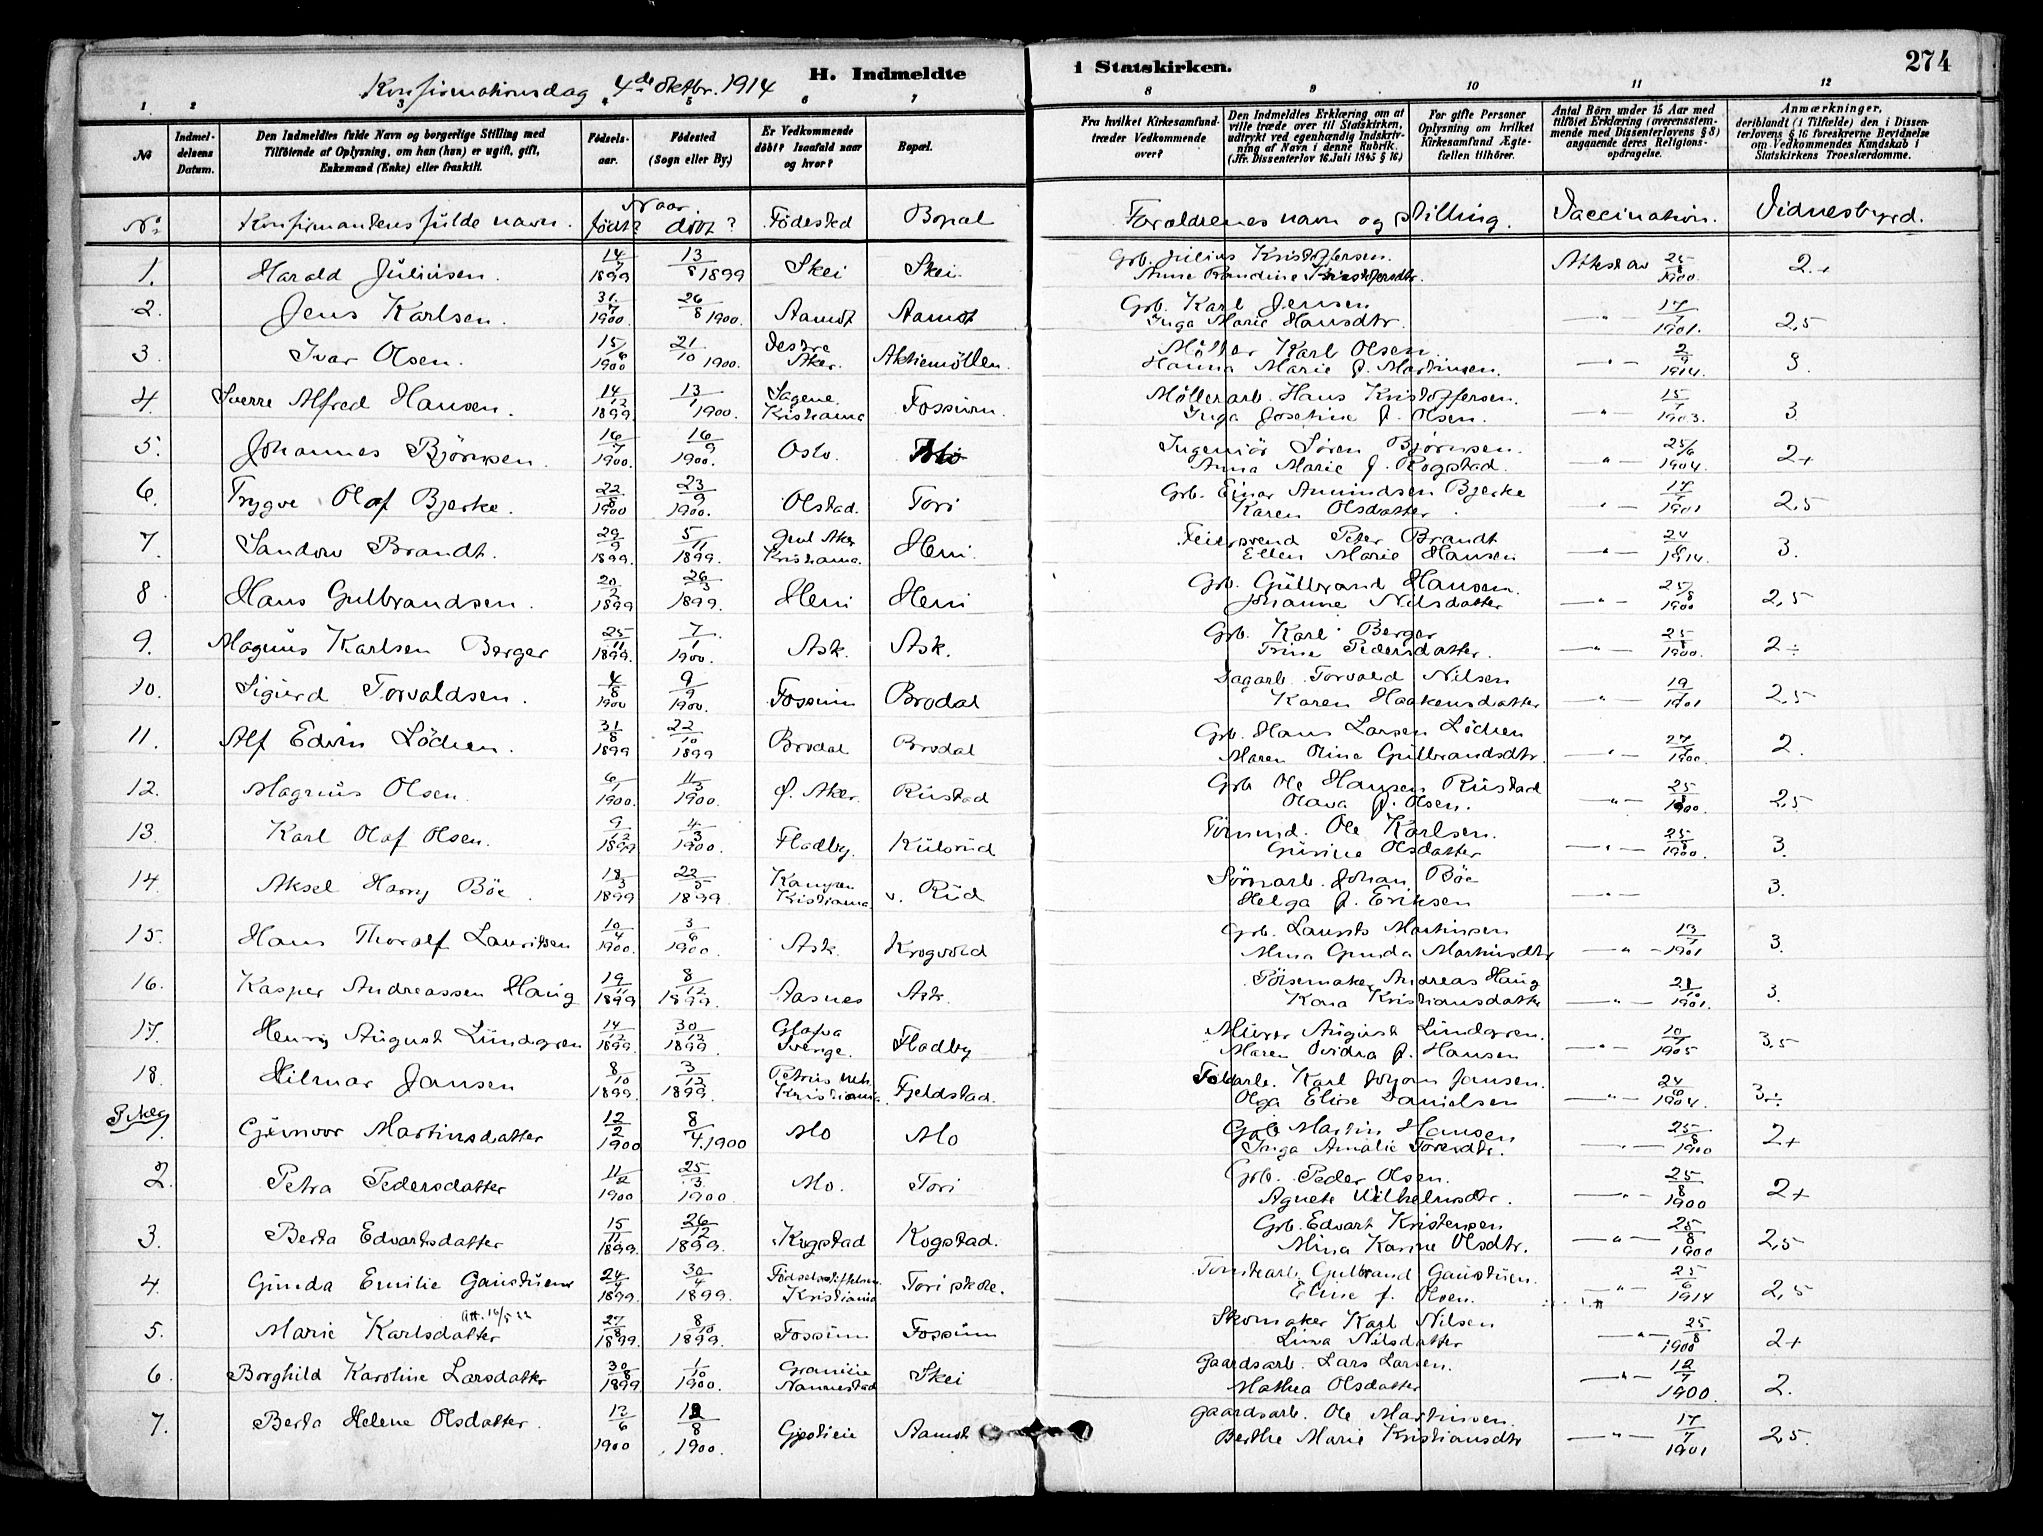 274
Konfirmationsdag 4de oktbr. 1914
H. Indmeldte i Statskirken.
1 2 3 4 5 6 7 8 9 10 11 12
№
Indmel-
delsens
Datum.
Den Indmeldtes fulde Navn og borgerlige Stilling med
Tilføiende af Oplysning, om han (hun) er ugift, gift,
Enkemand (Enke) eller fraskilt.
Fødsels-
aar.
Fødested
(Sogn eller By).
Er Vedkommende
døbt? Isaafald naar
og hvor?
Bopæl.
Fra hvilket Kirkesamfund
træder Vedkommende
over?
Den Indmeldtes Erklæring om at
ville træde over til Statskirken,
udtrykt ved egenhændig Indskriv-
ning af Navn i denne Rubrik.
(Jfr. Dissenterlov 16 Juli 1845 § 16)
For gifte Personer
Oplysning om hvilket
Kirkesamfund Ægte-
fællen tilhører.
Antal Børn under 15 Aar med
tilføiet Erklæring (overensstem-
mende med Dissenterlovens § 8)
angaaende deres Religions-
opdragelse.
Anmærkninger,
deriblandt (i Tilfælde) den i Dissen-
terlovens § 16 foreskrevne Bevidnelse
om Vedkommendes Kundskab i
Statskirkens Troeslærdomme.
Naar
No. Konfirmantens fulde navn. født? døbt? Fødested Bopæl Forældrenes navn og stilling. Vaccination. Vidnesbyrd.
1. Harald Juliusen. 14/7 1899 13/8 1899 Skei Skei Grb. Julius Kristoffersen. 25/8 1900. 2+
Anne Randine
2. Jens Karlsen. 31/7 1900. 26/8 1900. Aamot Aamot Grb. Karl Jensen
Inga Marie Hansdtr. —"— 17/7 1901. 2,5
3. Ivar Olsen. 15/6 1900 21/10 1900. Vestre Aker. Aktiemøllen. Møller Karl Olsen
Hanna Marie f. Martinsen. —"— 2/9 1914. 3.
4. Sverre Alfred Hansen. 14/12 1899. 13/1 1900. Sagene Kristiania Fossum. Møllerarb. Hans Kristoffersen.
Inga Josefine f. Olsen. —"— 15/7 1903. 3
5. Johannes Bjørnsen. 16/7 1900. 16/9 1900. Oslo. Ingeniør Søren Bjørnsen.
Anna Marie f. Rogstad. —"— 25/6 1904. 2+
6. Trygve Olaf Bjerke. 22/8 1900 23/9 1900. Olstad. Tori Grb. Einar Amundsen Bjerke
Karen Olsdatter —"— 17/7 1901 2,5
7. Sandow Brandt. 29/9 1899. 5/11 1899. Gml Aker Kristiania. Heni. Feiersvend Peter Brandt
Ellen Marie Hansen —"— 24/6 1914. 3.
8. Hans Gulbrandsen. 20/2 1899 26/3 1899. Heni Heni Grb. Gulbrand Hansen.
Johanne Nilsdatter —"— 25/8 1900 2,5
9. Magnus Karlsen Berger 25/11 1899. 7/1 1900. Ask. Ask. Grb. Karl Berger
Trine Pedersdatter. —"— 25/8 1900. 2÷
10. Sigurd Torvaldsen. 4/8 1900 9/9 1900. Fossum Brodal Dagarb. Torvald Nilsen
Karen Haakensdatter 19/7 1901 2,5
11. Alf Edvin Löchen. 31/8 1899 22/10 1899 Brodal Brodal Grb. Hans Larsen Löchen
Maren Olina Gulbrandsdtr. —"— 27/7 1900. 2.
12. Magnus Olsen. 6/1 1900. 11/3 1900. Ø. Aker. Rustad Grb Ole Hansen Rustad
Olava f. Olsen. —"— 25/8 1900. 2,5
13. Karl Olaf Olsen. 9/12 1899 4/3 1900. Fladby. Kulsrud Tömmd. Ole Karlsen.
Gurine Olsdatter —"— 25/8 1900. 3.
14. Aksel Harry Böe. 18/3 1899 22/5 1899 Kampen Kristiania v. Rud Johan Böe
Helga f. Eriksen —"— 3.
15. Hans Thoralf Lauritsen 10/4 1900. 3/6 1900. Ask. Krogvold Grb. Laurits Martinsen
Gunda Martinsdtr —"— 13/7 1901 3.
16. Kasper Andreassen Haug 19/11 1899 8/12 1899. Aasnes Ask. Børsemaker Andreas Haug
Kristiansdatter —"— 21/10 1901. 3.
17. Henry August Lundgren 14/12 1899. 30/12 1899. Glafva Sverige. Fladby Murer August Lundgren.
Maren Ovidia f. Hansen —"— 10/7 1905 3,5
18. Hilmar Jansen 8/10 1899. 3/12 1899. Petrus Kristiania. Fjeldstad. Karl Johan Jansen.
Olga Elise Danielsen —"— 24/6 1904. 3÷
Piker
1. Gunvor Martinsdatter 12/2 1900 8/4 1900 Mo Mo Grb Martin Hansen
Inga Amalie —"— 25/8 1900 2+
2. Petra Pedersdatter 11/2 1900 25/3 1900. Mo. Tori Grb. Peder Olsen.
Agnete Vilhelmsdtr. —"— 25/8 1900 2+
3. Berta Edvartsdatter 15/11 1899. 26/12 1899. Kogstad Kogstad. Grb. Edvart Kristensen
Mina Karine Olsdtr. —"— 25/8 1900 2,5
4. Gunda Emilie Gaustuen 24/4 1899. 30/4 1899. Fødselsstiftelsen Kristiania Tori skole. Gulbrand Gaustuen.
Eline f. Olsen. —"— 25/6 1914 2,5
Att. 16/5 22
5. Marie Karlsdatter 27/8 1899. 8/10 1899. Fossum Fossum Skomaker Karl Nilsen
Lina Nilsdatter —"— 25/8 1900 2+
6. Borghild Karoline Larsdatter 30/8 1899 1/10 1900. Nannestad Skei Gaardsarb. Lars Larsen.
Mathea Olsdatter —"— 12/7 1900. 2.
7. Berta Helene Olsdatter. 12/6 1900 12/8 1900. Aamot Gaardsarb. Ole Martinsen.
Berthe Marie Kristiansdtr —"— 17/7 1901 2,5.